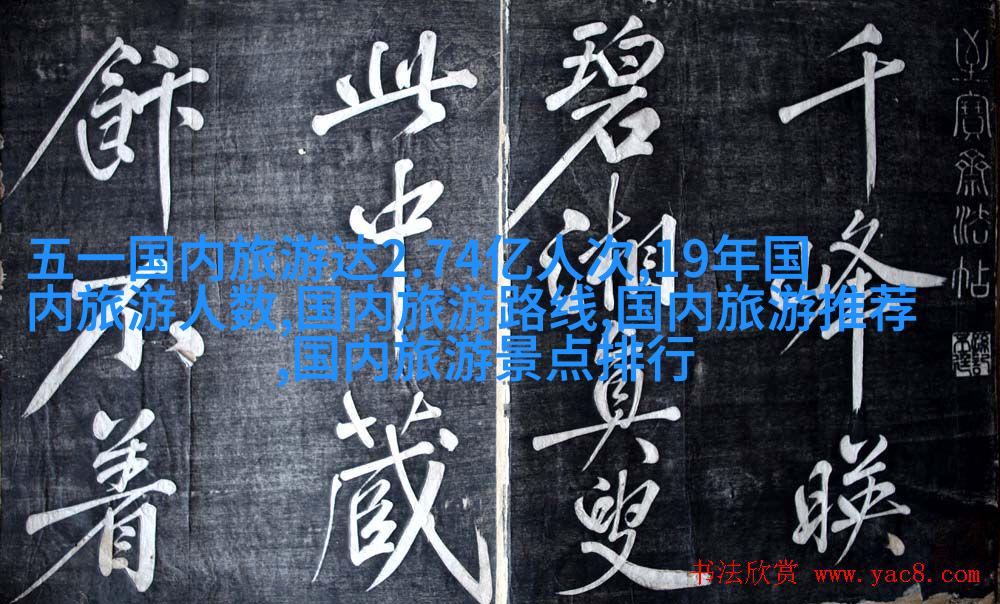 至寶齋法帖
千峰映
碧湘真叟
此中藏
飰不着
五一国内旅游达2.74亿人次,19年国
内旅游人数,国内旅游路线,国内旅游推荐
,国内旅游景点排行
书法欣赏 www.yac8.com